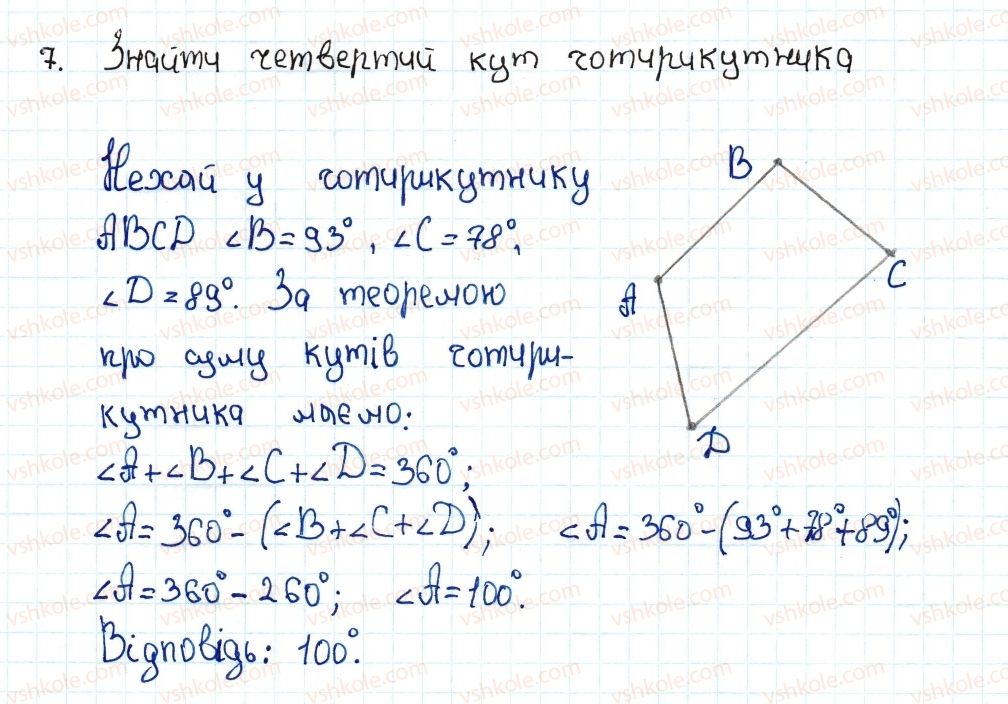 7. Знайти четвертий кут чотирикутника
Нехай у чотирикутнику
ABCD ∠B=93°, ∠C=78°,
∠D=89°. За теоремою
про суму кутів чотири-
кутника маємо:
∠A+∠B+∠C+∠D=360°;
∠A=360°-(∠B+∠C+∠D); ∠A=360°-(93°+78°+89°);
∠A=360°-260°; ∠A=100°.
Відповідь: 100°.
B
A
C
D
vshkole.com